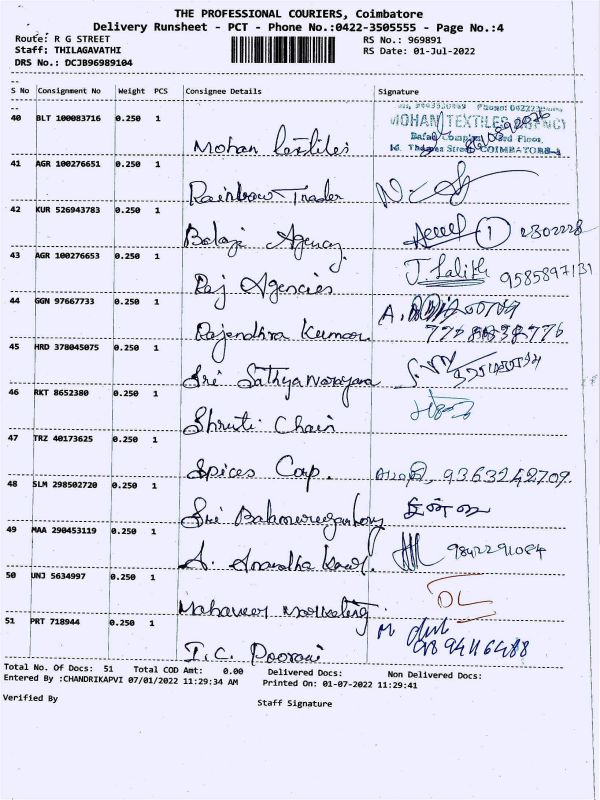 THE PROFESSIONAL COURIERS, Coimbatore
Delivery Runsheet - PCT - Phone No.:0422-3505555 - Page No.:4
Route: R G STREET RS No.: 969891
Staff: THILAGAVATHI RS Date: 01-Jul-2022
DRS No.: DCJB96989104
S No Consignment No Weight PCS Consignee Details Signature
40 BLT 100083716 0.250 1 Mohan textiles
MOHAN TEXTILES AGENCY
COIMBATORE
41 AGR 100276651 0.250 1 Rainbow Trader
42 KUR 526943783 0.250 1 Balaji Agency 1
43 AGR 100276653 0.250 1 Raj Agencies J. Lalith 9585897131
44 GGN 97667733 0.250 1 Rajendhra Kumar
45 HRD 378045075 0.250 1 Sri Sathya Narayana
46 RKT 8652380 0.250 1 Shruti Chain
47 TRZ 40173625 0.250 1 Spices Corp. 9363242709.
48 SLM 298502720 0.250 1 Sri
49 MAA 290453119 0.250 1 A. 9842291084
50 UNJ 5634997 0.250 1 Mahaveer Marketing
51 PRT 718944 0.250 1 T.C. Poorani
Total No. Of Docs: 51 Total COD Amt: 0.00 Delivered Docs: Non Delivered Docs:
Entered By :CHANDRIKAPVI 07/01/2022 11:29:34 AM Printed On: 01-07-2022 11:29:41
Verified By
Staff Signature